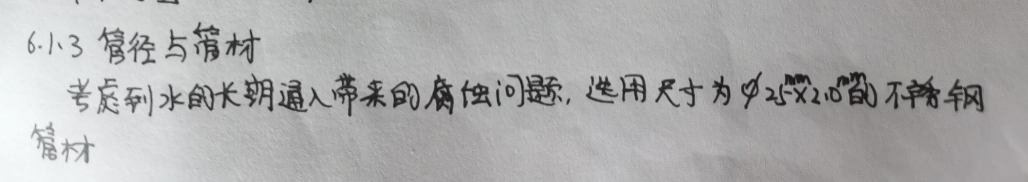 6.1.3 管径与管材
考虑到水的长期通入带来的腐蚀问题, 选用尺寸为φ25mm×2.0mm的不锈钢
管材